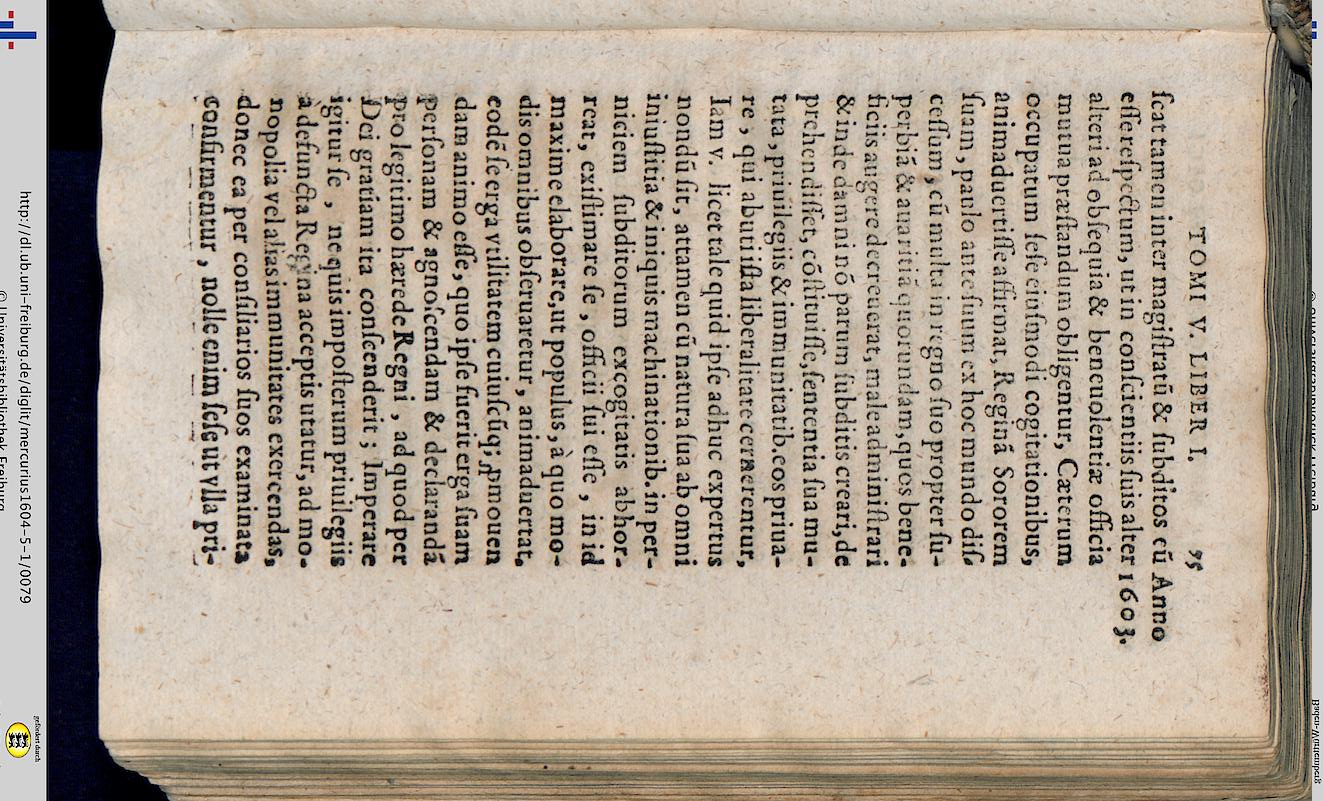 TOMI V. LIBER I. 75
ſcat tamen inter magiſtratū & ſubditos cū Anno
eſſe reſpectum, ut in conſcientiis ſuis alter 1603.
alteri ad obſequia & beneuolentiæ officia
mutua præſtandum obligentur, Cæterum
occupatum ſeſe eiuſmodi cogitationibus,
animaduertiſſe affirmat, Reginā Sororem
ſuam, paulo ante ſuum ex hoc mundo diſ-
ceſſum, cū multa in regno ſuo propter ſu-
perbiā & auaritiā quorundam, quos bene-
ficiis augere decreuerat, male adminiſtrari
& inde damni nō parum ſubditis creari, de
prehendiſſet, cōſtituiſſe, ſententia ſua mu-
tata, priuilegiis & immunitatib. eos priua-
re, qui abuti iſta liberalitate cernerentur,
Iam v. licet tale quid ipſe adhuc expertus
nondū ſit, attamen cū natura ſua ab omni
iniuſtitia & iniquis machinationib. in per-
niciem ſubditorum excogitatis abhor-
reat, exiſtimare ſe, officii ſui eſſe, in id
maxime elaborare, ut populus, à quo mo-
dis omnibus obſeruaretur, animaduertat,
eodē ſe erga vtilitatem cuiuſcūq; ꝓmouen
dam animo eſſe, quo ipſe fuerit erga ſuam
perſonam & agnoſcendam & declarandā
pro legitimo hærede Regni, ad quod per
Dei gratiam ita conſcenderit; Imperare
igitur ſe, ne quis impoſterum priuilegiis
à defuncta Regina acceptis utatur, ad mo-
nopolia vel alias immunitates exercendas,
donec ea per conſiliarios ſuos examinata
confirmentur, nolle enim ſeſe ut vlla pri-
http://dl.ub.uni-freiburg.de/diglit/mercurius1604-5-1/0079
© Universitätsbibliothek Freiburg
gefördert durch